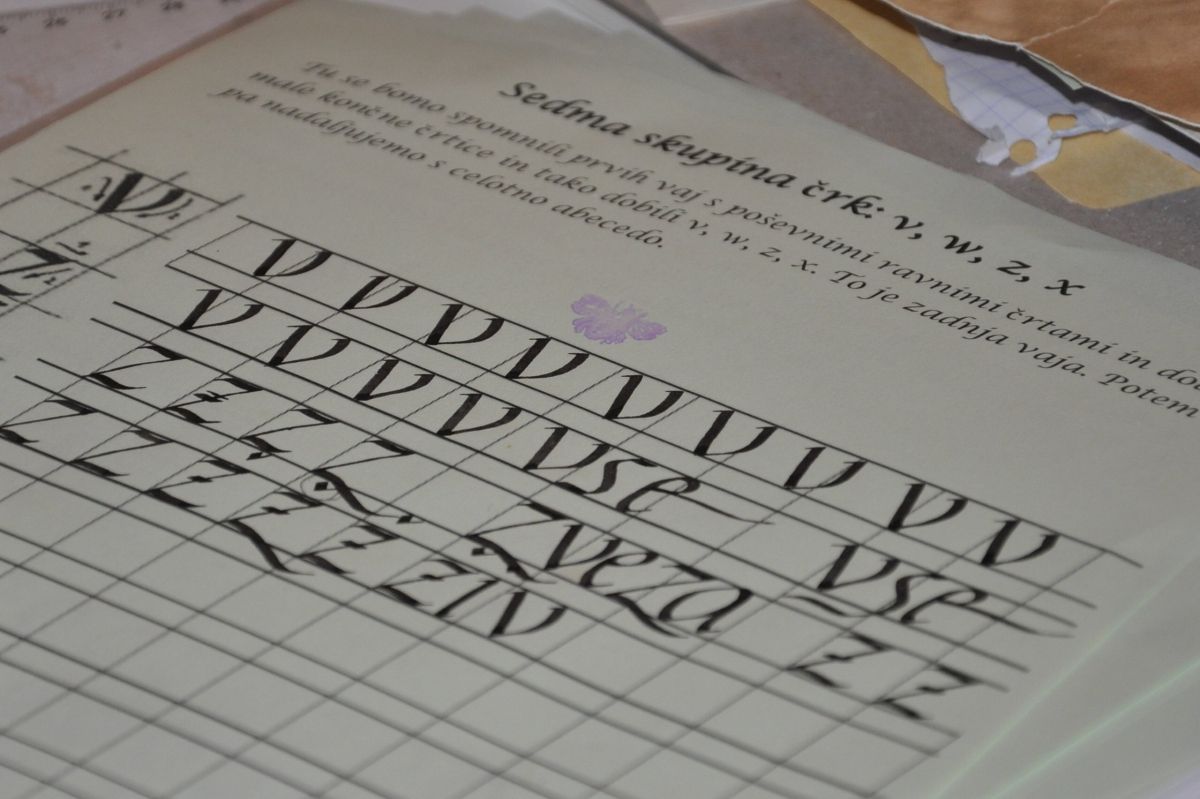 Sedma skupina črk: v, w, z, x
Tu se bomo spomnili prvih vaj s poševnimi ravnimi črtami in
male končne črtice in tako dobili v, w, z, x. To je zadnja vaja. Potem
pa nadaljujemo s celotno abecedo.
v v v v v v v v v
v v v v vse vse
z z z z zveza z z
z z z z z ziv